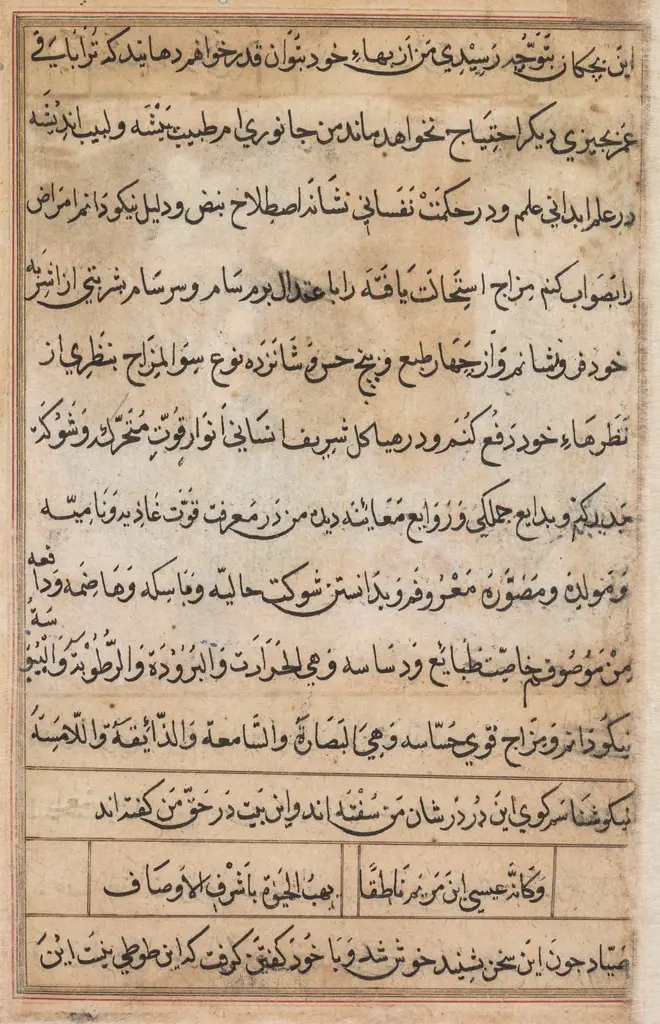 این بچکان بتو چه رسیدی من از بهاء خود بتو آن قدر خواهم دهانید که ترا باقی
عمر بچیزی دیکر احتیاج نخواهد ماند من جانوری ام طبیب پیشه و لبیب اندیشه
در علم ابدانی علم و در حکمت نفسانی نشانه اصطلاح نبض و دلیل نیکو دانم امراض
را بصواب کنم مزاج استحالت یافته را با عتدال برم سام و سرسام بشربتی از اشربه
خود فرو نشانم و از چهار طبع و پنج حس و شانزده نوع سوالمزاج بنظری از
نظرهاء خود دفع کنم و در هیاکل شریف انسانی انوار قوت متحرکه و شوکة
پدید کنم و بدایع جملکی و روایع معاینه دیده من در معرفت قوت غاذیه و نامیه
و مولده و مصوره معروفم و بدانستن شوکت جالیه و ماسکه و هاضمه و دافعه
من موصوفم خاصیت طبایع و دساسه وهي الحرارت والبرودة والرطوبة والیبوسة
نیکو دانم و مزاج قوی حساسه وهي البصارة والسامعة والذائقة واللامسة
نیکو شناسم کوی این در در شان من سفته اند و این بیت در حق من کفته اند
وکانه عیسی ابن مریم ناطقا یهب الحیوة باشرف الاوصاف
صیاد چون این سخن بشنید خوش شد و با خود کفتن کرفت که این طوطی نیست این